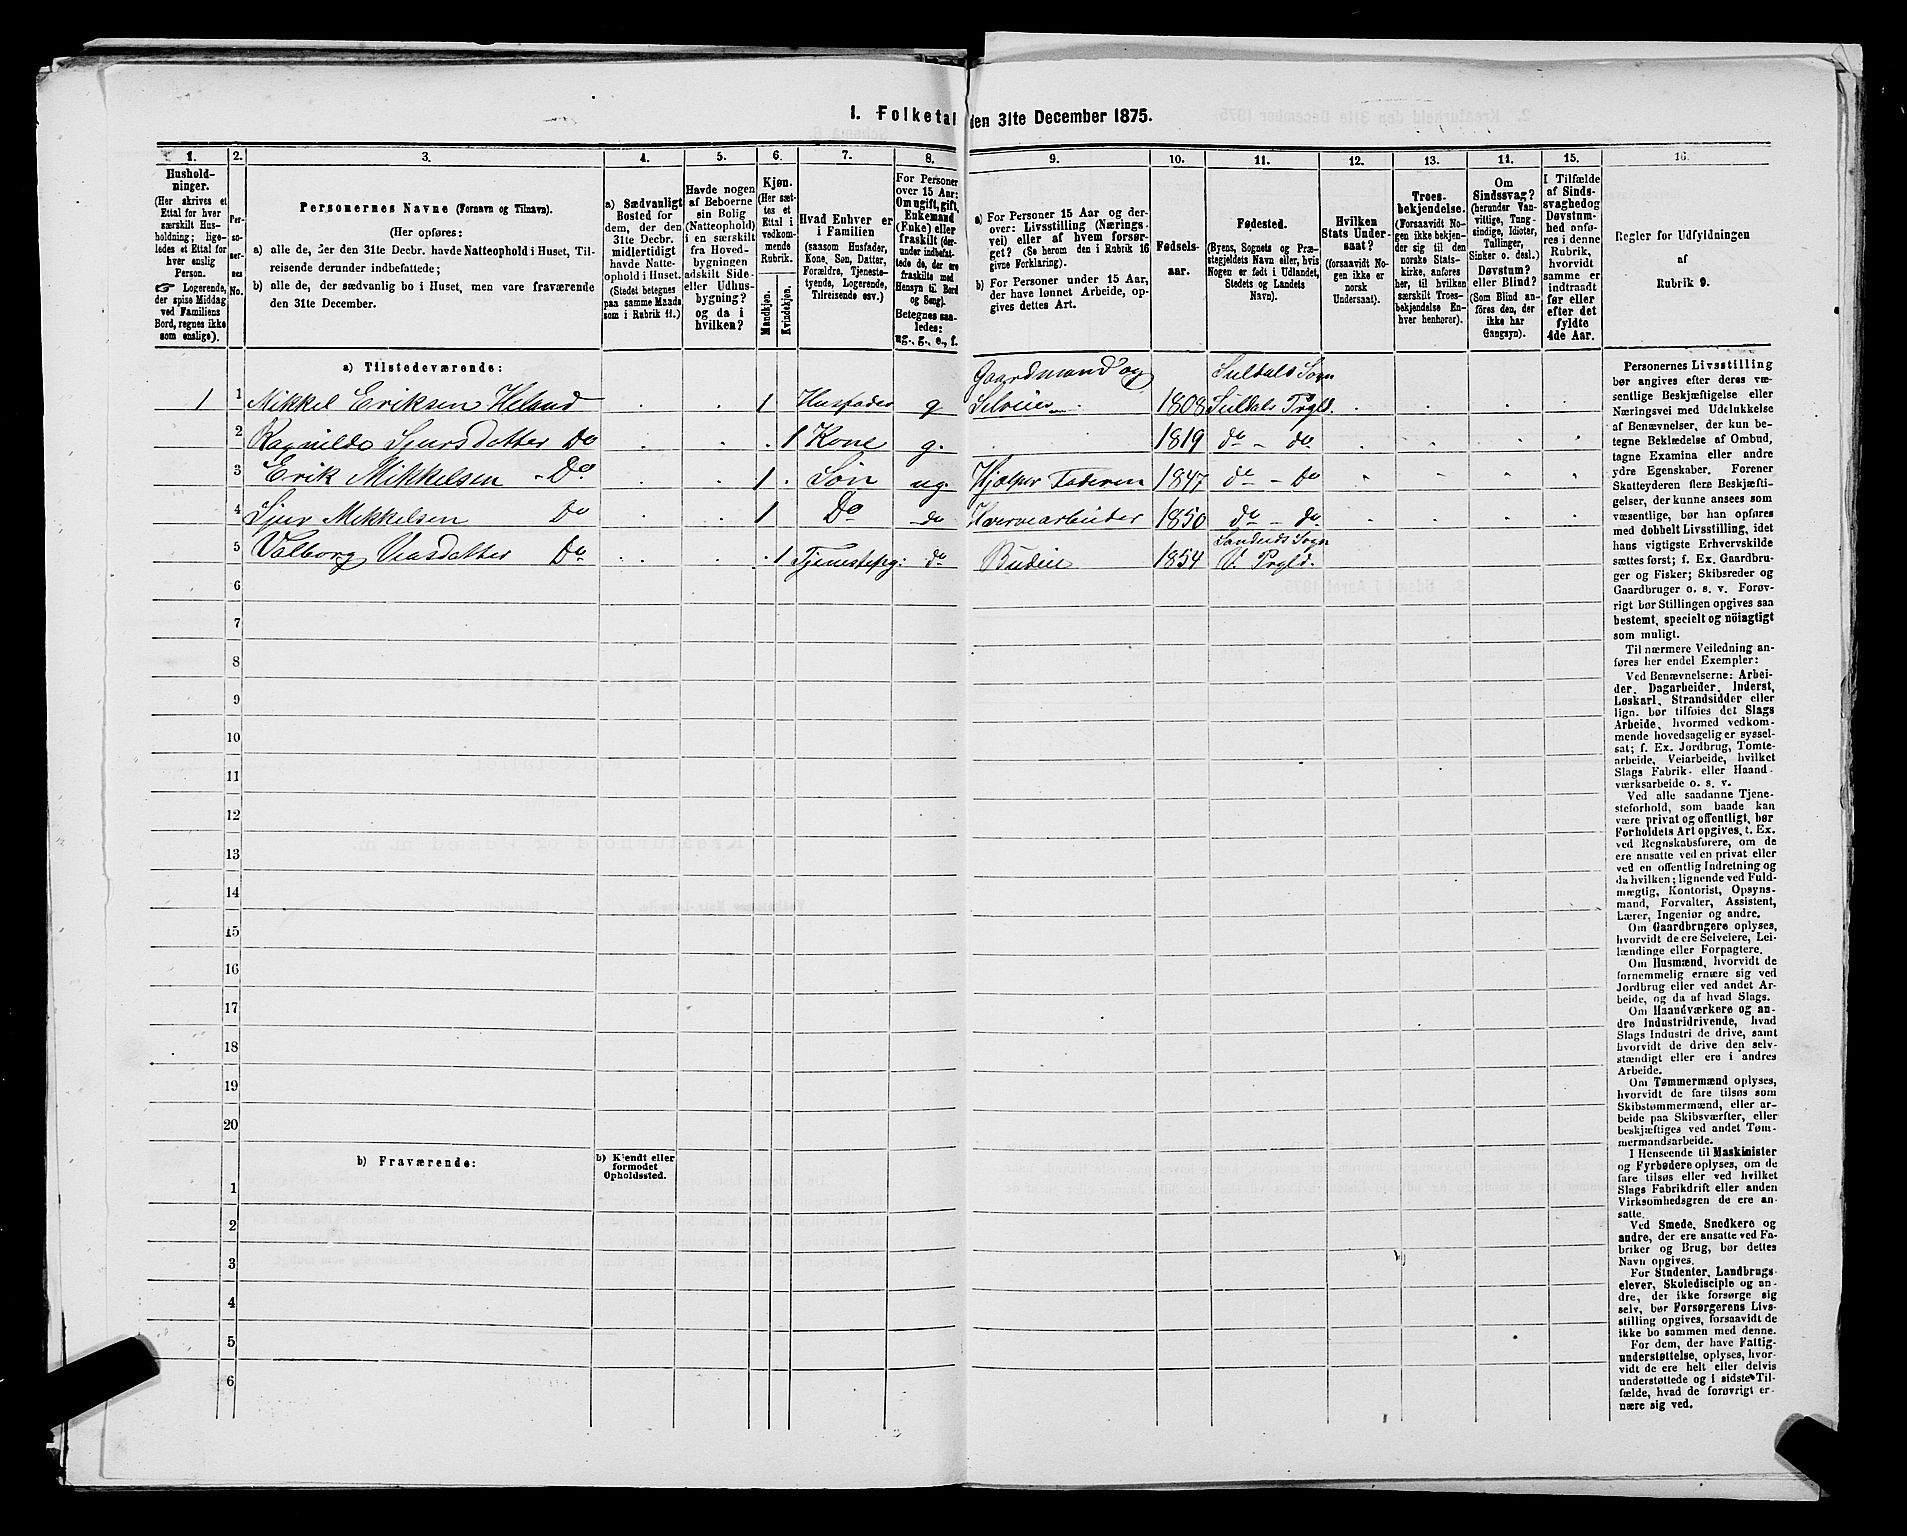 1. Folketal den 31te December 1875.
1.
2.
3.
4.
5.
6.
7.
8.
9.
10.
11.
12.
13.
14.
15.
16.
Hushold-
ninger.
(Her skrives et
Ettal for hver
særskilt Hus-
holdning; lige-
ledes et Ettal for
hver enslig
Person.
☞ Logerende,
der spise Middag
ved Familiens
Bord, regnes ikke
som enslige).
Per-
so-
ner-
nes
No.
Personernes Navne (Fornavn og Tilnavn).
(Her opføres:
a) alle de, der den 31te Decbr. havde Natteophold i Huset, Til-
reisende derunder indbefattede;
b) alle de, der sædvanlig bo i Huset, men vare fraværende
den 31te December.
a) Sædvanligt
Bosted for
dem, der den
31te Decbr.
midlertidigt
havde Natte-
ophold i Huset.
(Stedet betegnes
paa samme Maade
som i Rubrik 11.)
Havde nogen
af Beboerne
sin Bolig
(Natteophold)
i en særskilt
fra Hoved-
bygningen
adskilt Side-
eller Udhus-
bygning?
og da i
hvilken?
Kjøn.
(Her sæt-
tes et
Ettal i
vedkom-
mende
Rubrik.
Mandkjøn.
Kvindekjøn.
Hvad Enhver er
i Familien
(saasom Husfader,
Kone, Søn, Datter,
Forældre, Tjeneste-
tyende, Logerende,
Tilreisende osv.)
For Personer
over 15 Aar:
Om ugift, gift,
Enkemand
(Enke) eller
fraskilt (der-
under indbefat-
tede de, der ere
fraskilte med
Hensyn til Bord
og Seng).
Betegnes saa-
ledes:
ug., g., e., f.
a) For Personer 15 Aar og der-
over: Livsstilling (Nærings-
vei) eller af hvem forsør-
get? (Se herom den i Rubrik 16
givne Forklaring).
b) For Personer under 15 Aar,
der have lønnet Arbeide, op-
gives dettes Art.
Fødsels-
aar.
Fødested.
(Byens, Sognets og Præ-
stegjeldets Navn eller, hvis
Nogen er født i Udlandet,
Stedets og Landets
Navn).
Hvilken
Stats Under-
saat?
(forsaavidt No-
gen ikke er
norsk
Undersaat).
Troes-
bekjendelse.
(Forsaavidt No-
gen ikke bekjen-
der sig til den
norske Stats-
kirke, anføres
her, til hvilken
særskilt Troes-
bekjendelse En-
hver henhører).
Om
Sindssvag?
(herunder Van-
vittige, Tung-
sindige, Idioter,
Tullinger,
Sinker o. desl.)
Døvstum?
eller Blind?
(Som Blind an-
føres den, der
ikke har
Gangsyn).
I Tilfælde
af Sinds-
svaghed og
Døvstum-
hed anfø-
res i denne
Rubrik,
hvorvidt
samme er
indtraadt
før eller
efter det
fyldte
4de Aar.
Regler for Udfyldningen
af
Rubrik 9.
a) Tilstedeværende:
Gaardmand og Suldals Sogn
1 1 Mikkel Eriksen Heland 1 Husfader g Selveier 1808 Suldals Prgld.
2 Ragnilde Sjursdatter Do 1 Kone g. 1819 do - do
3 Erik Mikkelsen - Do 1 Søn ug. Hjælper Faderen 1847 do - do
4 Sjur Mikkelsen Do 1 Do do 1850 do - do
Sogn
5 Valborg Do 1 Tjenestepig: do Budeie 1854 V. Prgld.
6
7
8
9
10
11
12
13
14
15
16
17
18
19
20
b) Fraværende:
b) Kjendt eller
formodet
Opholdssted.
1
2
3
4
5
6
Personernes Livsstilling
bør angives efter deres væ-
sentlige Beskjæftigelse eller
Næringsvei med Udelukkelse
af Benævnelser, der kun be-
tegne Beklædelse af Ombud,
tagne Examina eller andre
ydre Egenskaber. Forener
Skatteyderen flere Beskjæfti-
gelser, der kunne ansees som
væsentlige, bør han opføres
med dobbelt Livsstilling, idet
hans vigtigste Erhvervskilde
sættes først; f. Ex. Gaardbru-
ger og Fisker; Skibsreder og
Gaardbruger o. s. v. Forøv-
rigt bør Stillingen opgives saa
bestemt, specielt og nöiagtigt
som muligt.
Til nærmere Veiledning an-
føres her endel Exempler:
Ved Benævnelserne: Arbei-
der, Dagarbeider, Inderst,
Løskarl, Strandsidder eller
lign. bør tilføies det Slags
Arbeide, hvormed vedkom-
mende hovedsagelig er syssel-
sat; f. Ex. Jordbrug, Tomte-
arbeide, Veiarbeide, hvilket
Slags Fabrik- eller Haand-
værksarbeide o. s. v.
Ved alle saadanne Tjene-
steforhold, som baade kan
være privat og offentligt, bør
Forholdets Art opgives, t. Ex.
ved Regnskabsførere, om de
ere ansatte ved en privat eller
ved en offentlig Indretning og
da hvilken; lignende ved Fuld-
mægtig, Kontorist, Opsyns-
mand, Forvalter, Assistent,
Lærer, Ingeniør og andre.
Om Gaardbrugere oplyses,
hvorvidt de ere Selveiere, Lei-
lændinge eller Forpagtere.
Om Husmænd, hvorvidt de
fornemmelig ernære sig ved
Jordbrug eller ved andet Ar-
beide, og da af hvad Slags.
Om Haandværkere og an-
dre Industridrivende, hvad
Slags Industri de drive, samt
hvorvidt de drive den selv-
stændigt eller ere i andres
Arbeide.
Om Tømmermænd oplyses,
hvorvidt de fare tilsøs som
Skibstømmermænd, eller ar-
beide paa Skibsværfter, eller
beskjæftiges ved andet Tøm-
mermandsarbeide.
I Henseende til Maskinister
og Fyrbødere oplyses, om de
fare tilsøs eller ved hvilket
Slags Fabrikdrift eller anden
Virksomhedsgren de ere an-
satte.
Ved Smede, Snedkere og
andre, der ere ansatte ved Fa-
briker og Brug, bør dettes
Navn opgives.
For Studenter, Landbrugs-
elever, Skoledisciple og an-
dre, der ikke forsørge sig
selv, bør Forsørgerens Livs-
stilling opgives, forsaavidt de
ikke bo sammen med denne.
For dem, der have Fattig-
understøttelse, oplyses, hvor-
vidt de ere helt eller delvis
understøttede og i sidste Til-
fælde, hvad de forøvrigt er-
nære sig ved.